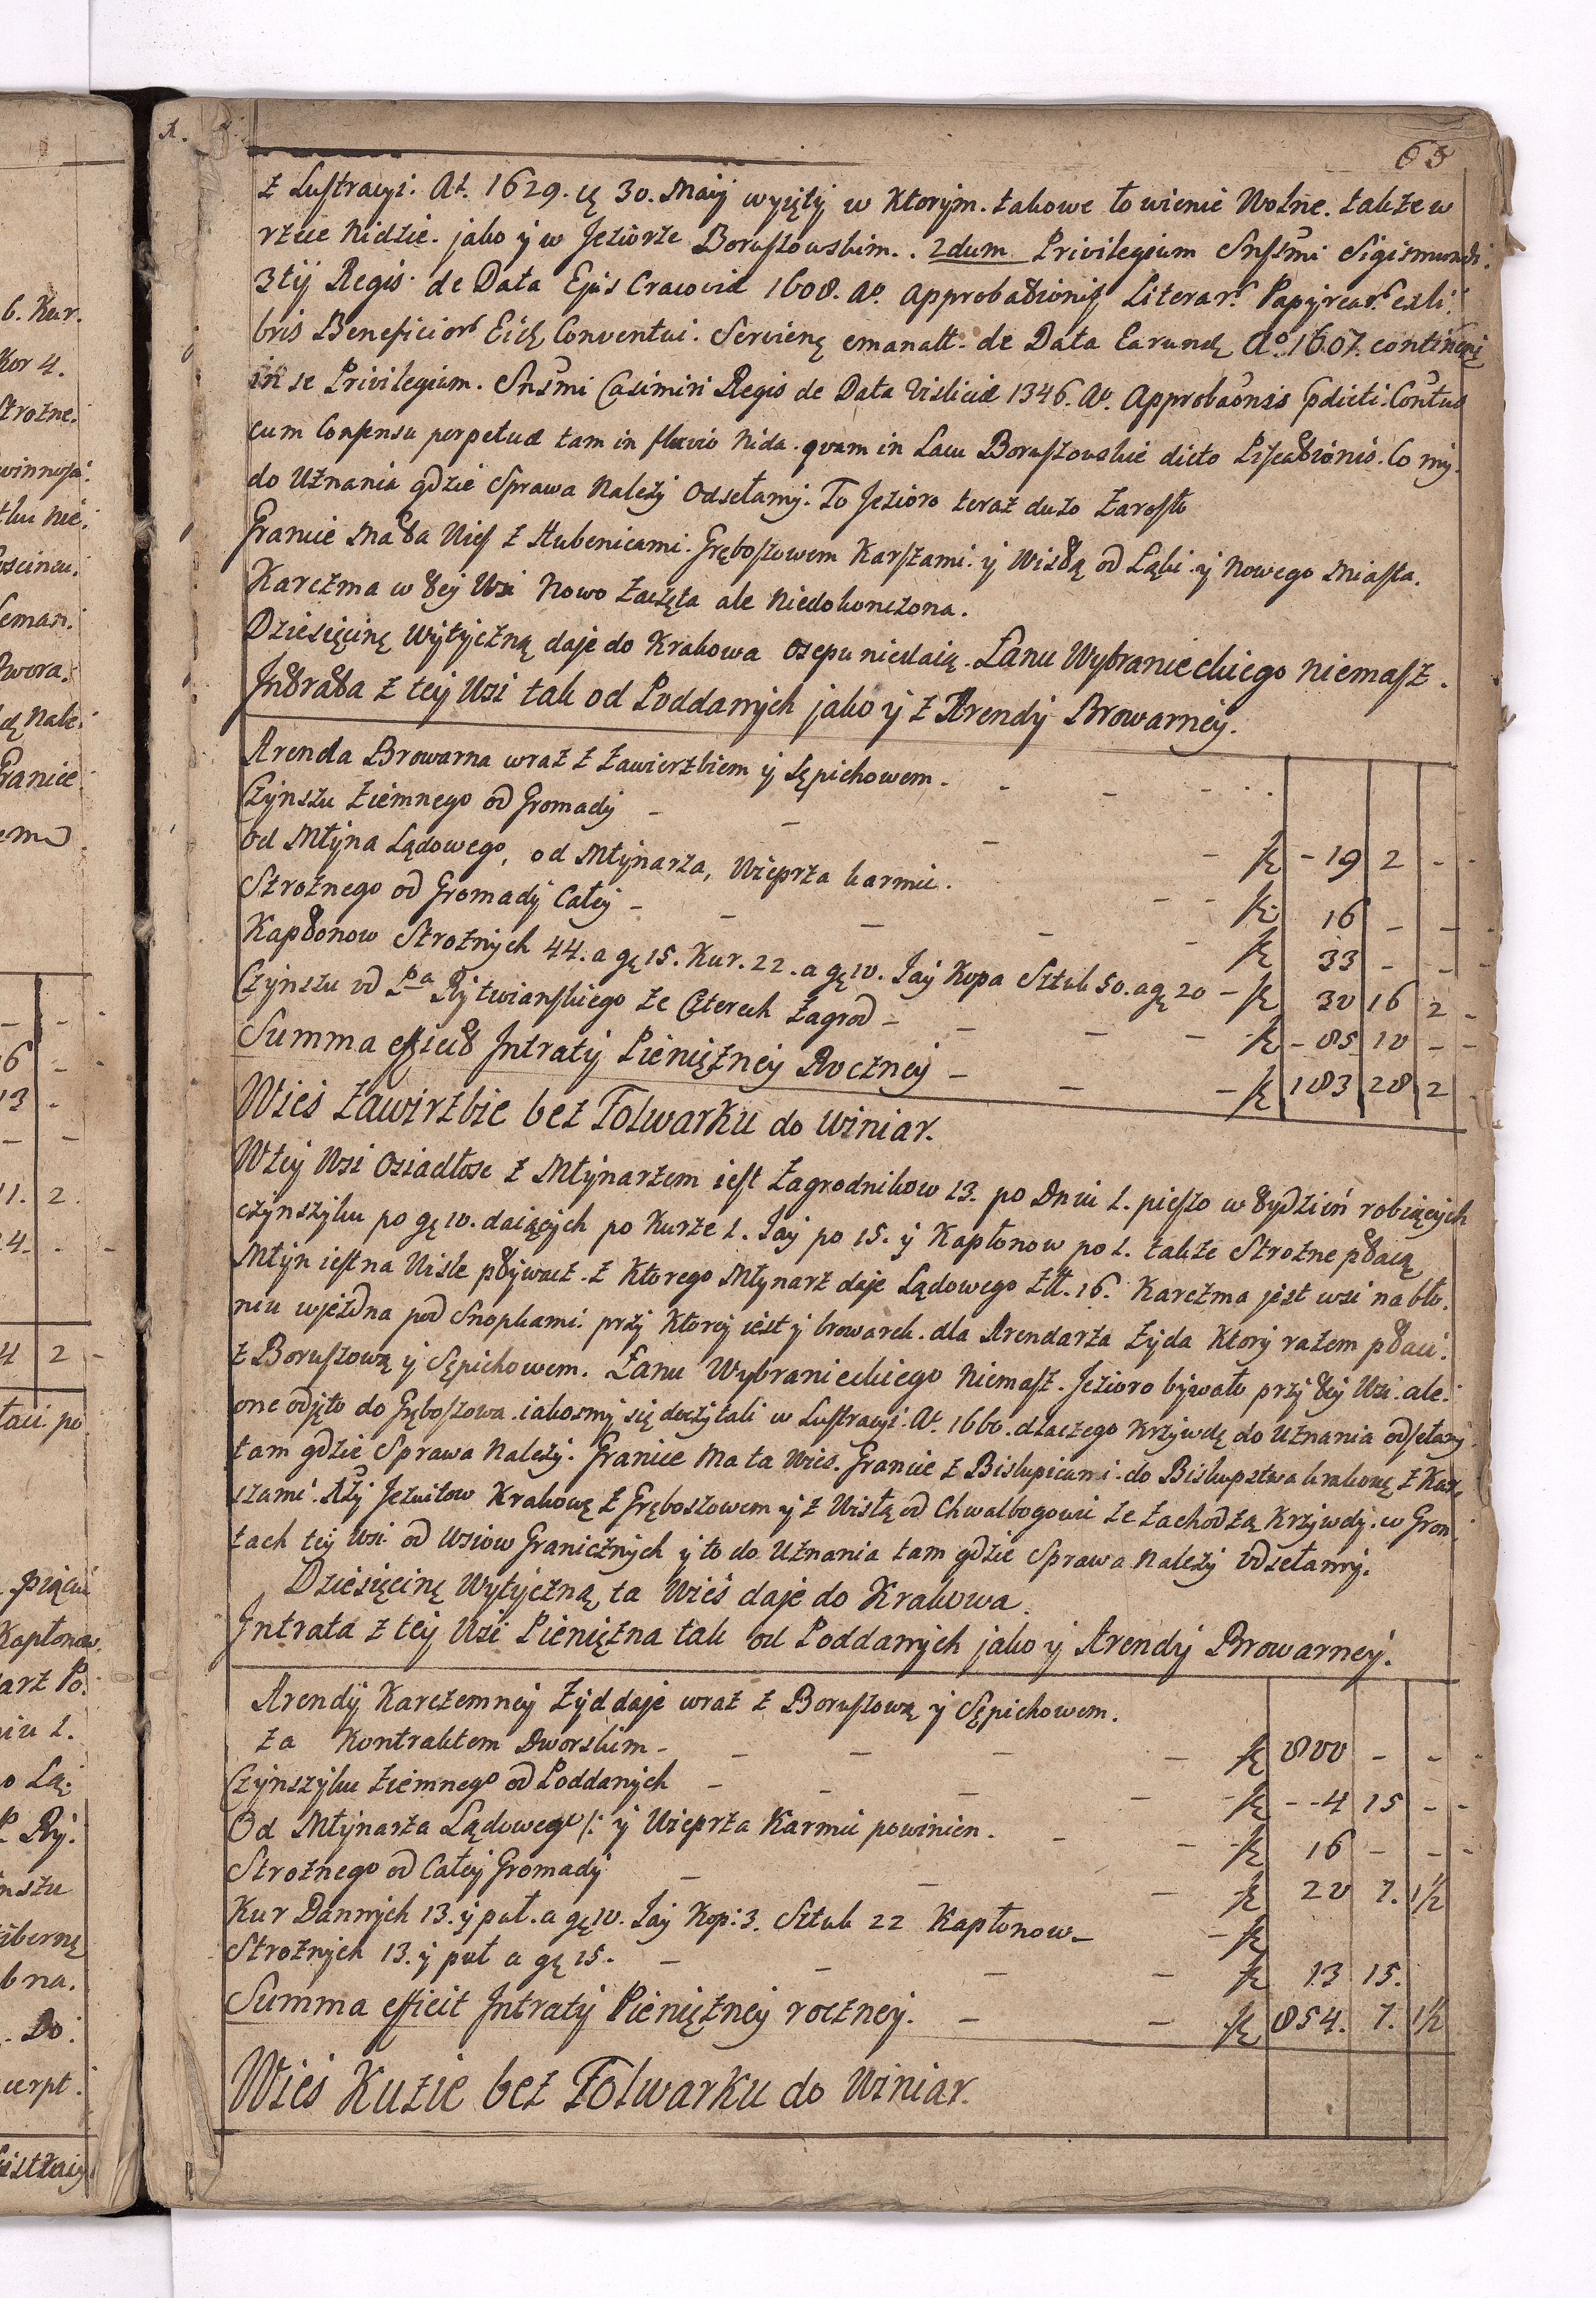 63
z Lustracyi. Aź. 1629. ię 30. Maij wyięty w Ktorym. takowe łowienie Wolne. także w
rzece Nidzie. jako y w Jeziorze Boruszowskim.. 2dum Privilegium Snssmi Sigismundi.
3tij Regis. de Data Ejus Cracoviæ 1608. Ao. Approbationis Literar. Papyrear. ex li:
bris Beneficior. Conventui. Servienę emanatt. de Data Earundę Ao. 1607. continenę
in se Privilegium. Snsmi Casimiri Regis de Data Visliciæ 1346. Ao. Approbaonsis pdicti. Contus
cum Consensu perpetuæ tam in fluvio Nida. quam in Lacu Boruszowskie dicto Piscationis. Co my.
do Uznania gdzie Sprawa Należy Odsełamy. To Jezioro teraz dużo Zarosło
Granice Ma ta Wieś z Hubenicami. Gręboszowem Karszami. y Wisłą od Ląki. y Nowego Miasta.
Karczma w tej Wsi Nowo Zaczęta ale Niedokonczona.
Dziesięcinę Wytyczną daje do Krakowa Osepu niedaią. Łanu Wybranieckiego niemasz.
Intrata z teÿ Wsi tak od Poddanych jako y z Arendy Browarneÿ.
Arenda Browarna wraz z Zawierzbiem y Sępichowem. - - - . .
Czynszu Ziemnego od Gromady - - - - zł - 19 2 - -
Od Młyna Lądowego, od Młynarza, Wieprza karmic. - - zł. 16 - -
Strożnego od Gromady Całey - - - - - zł 33 - -
Kapłonow Strożnych 44. a gę 15. Kur. 22. a gę 10. Jaÿ Kopa Sztuk 50. a gę 20 - zł 30 16 2 -
Czynszu od Pa Rytwianskiego ze Czterech Zagrod - - - - zł - 85 10 - -
Summa efficit Intraty Pieniężneÿ Roczneÿ - - - zł 183 28 2
Wieś Zawirzbie bez Folwarku do Winiar.
W teÿ Wsi Osiadłosc z Młynarzem iest Zagrodnikow 13. po Dniu 1. pieszo w tydzień robiących
czynszyku po gę 10. daiących po Kurze 1. Jaÿ po 15. y Kapłonow po 1. także Strożne płacą
Młyn iest na Wiśle pływacz. z Ktorego Młynarz daje Lądowego zł. 16. Karczma jest wsi na bło:
niu wjezdna pod Snopkami. przy Ktoreÿ iest y browarek. dla Arendarza Żyda Ktory razem płaci.
z Boruszową y Sępichowem. Łanu Wybranieckiego Niemasz. Jezioro bywało przy teÿ Wsi. ale.
one odjęto do Gręboszowa. iakosmy się doczytali w Lustracyi. Ao. 1660. dlaczego Krzywdę do Uznania odsełamy
tam gdzie Sprawa Należy. Granice Ma ta Wies. Granice z Biskupicami. do Biskupstwa krakowę z Kar,
szami. Xży Jezuitow Krakowę z Gręboszowem y z Wisłą od Chwałbogowic ze Zachodzą Krzywdy. w Grun,
tach teÿ Wsi. od Wsiow Granicznych y to do Uznania tam gdzie Sprawa Należy odsełamy.
Dziesięcinę Wytyczną ta Wieś daje do Krakowa.
Intrata z teÿ Wsi Pieniężna tak od Poddanych jako y Arendy Browarneÿ.
Arendy Karczemneÿ Żyd daje wraz z Boruszową y Sępichowem.
za Kontraktem Dworskim - - - - - zł 800 - -
Czynszyku Ziemnego od Poddanych - - - - zł - - 4 15 - -
Od Młynarza Lądowego /: y Wieprza Karmic powinien. - - zł 16 - - -
Strożnego od Całeÿ Gromady - - - zł 20 7. 1½
Kur Dannych 13. y puł. a gę 10. Jaÿ Kop: 3. Sztuk 22 Kapłonow - - zł
Strożnych 13. y puł a gę 15. - - - - zł 13 15.
Summa efficit Intraty Pieniężneÿ roczneÿ. - - zł 854. 7. 1½
Wieś Kuzie bez Folwarku do Winiar.